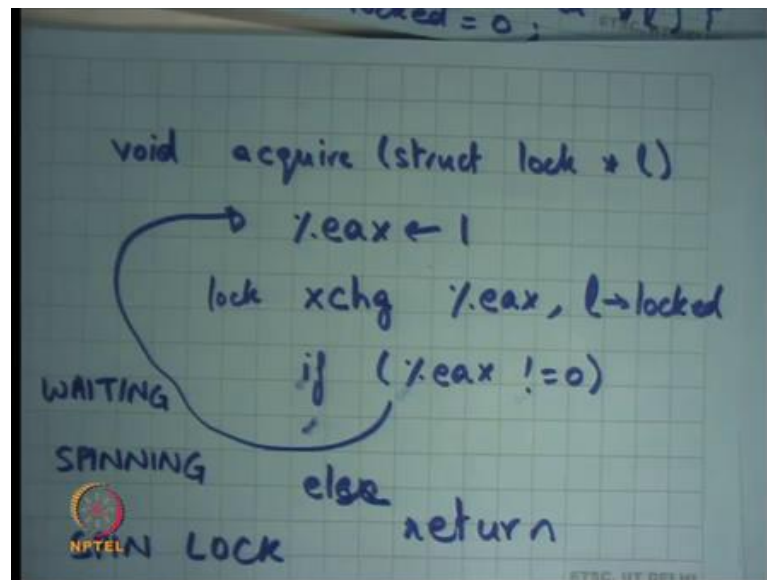 locked = 0;
void acquire (struct lock * l)
%eax ← 1
lock xchg %eax, l→locked
if (%eax != 0)
WAITING
SPINNING
else
return
NPTEL
SPIN LOCK